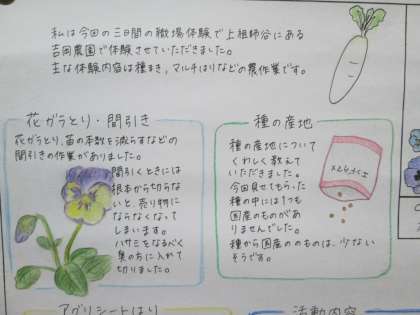 私は今回の三日間の職場体験で上祖師谷にある
吉岡農園で体験させていただきました。
主な体験内容は種まき、マルチはりなどの農作業です。
花ガラとり・間引き
花ガラとり、苗の本数を減らすなどの
間引きの作業がありました。
間引くときには
根本から切らな
いと、売り物に
ならなくなって
しまいます。
ハサミをなるべく
奥の方に入れて
切りました。
種の産地
種の産地について
くわしく教えて
いただきました。
今回見せてもらった
種の中には1つも
国産のものがあ
りませんでした。
種から国産ののものは、少ない
そうです。
アグリシートはり
活動内容